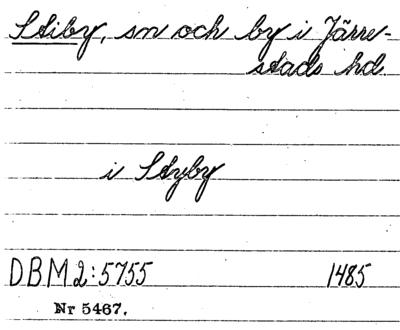 Stiby, sn och by i Järre-
stads hd.
i Styby
DBM 2:5755 1485
Nr 5467.